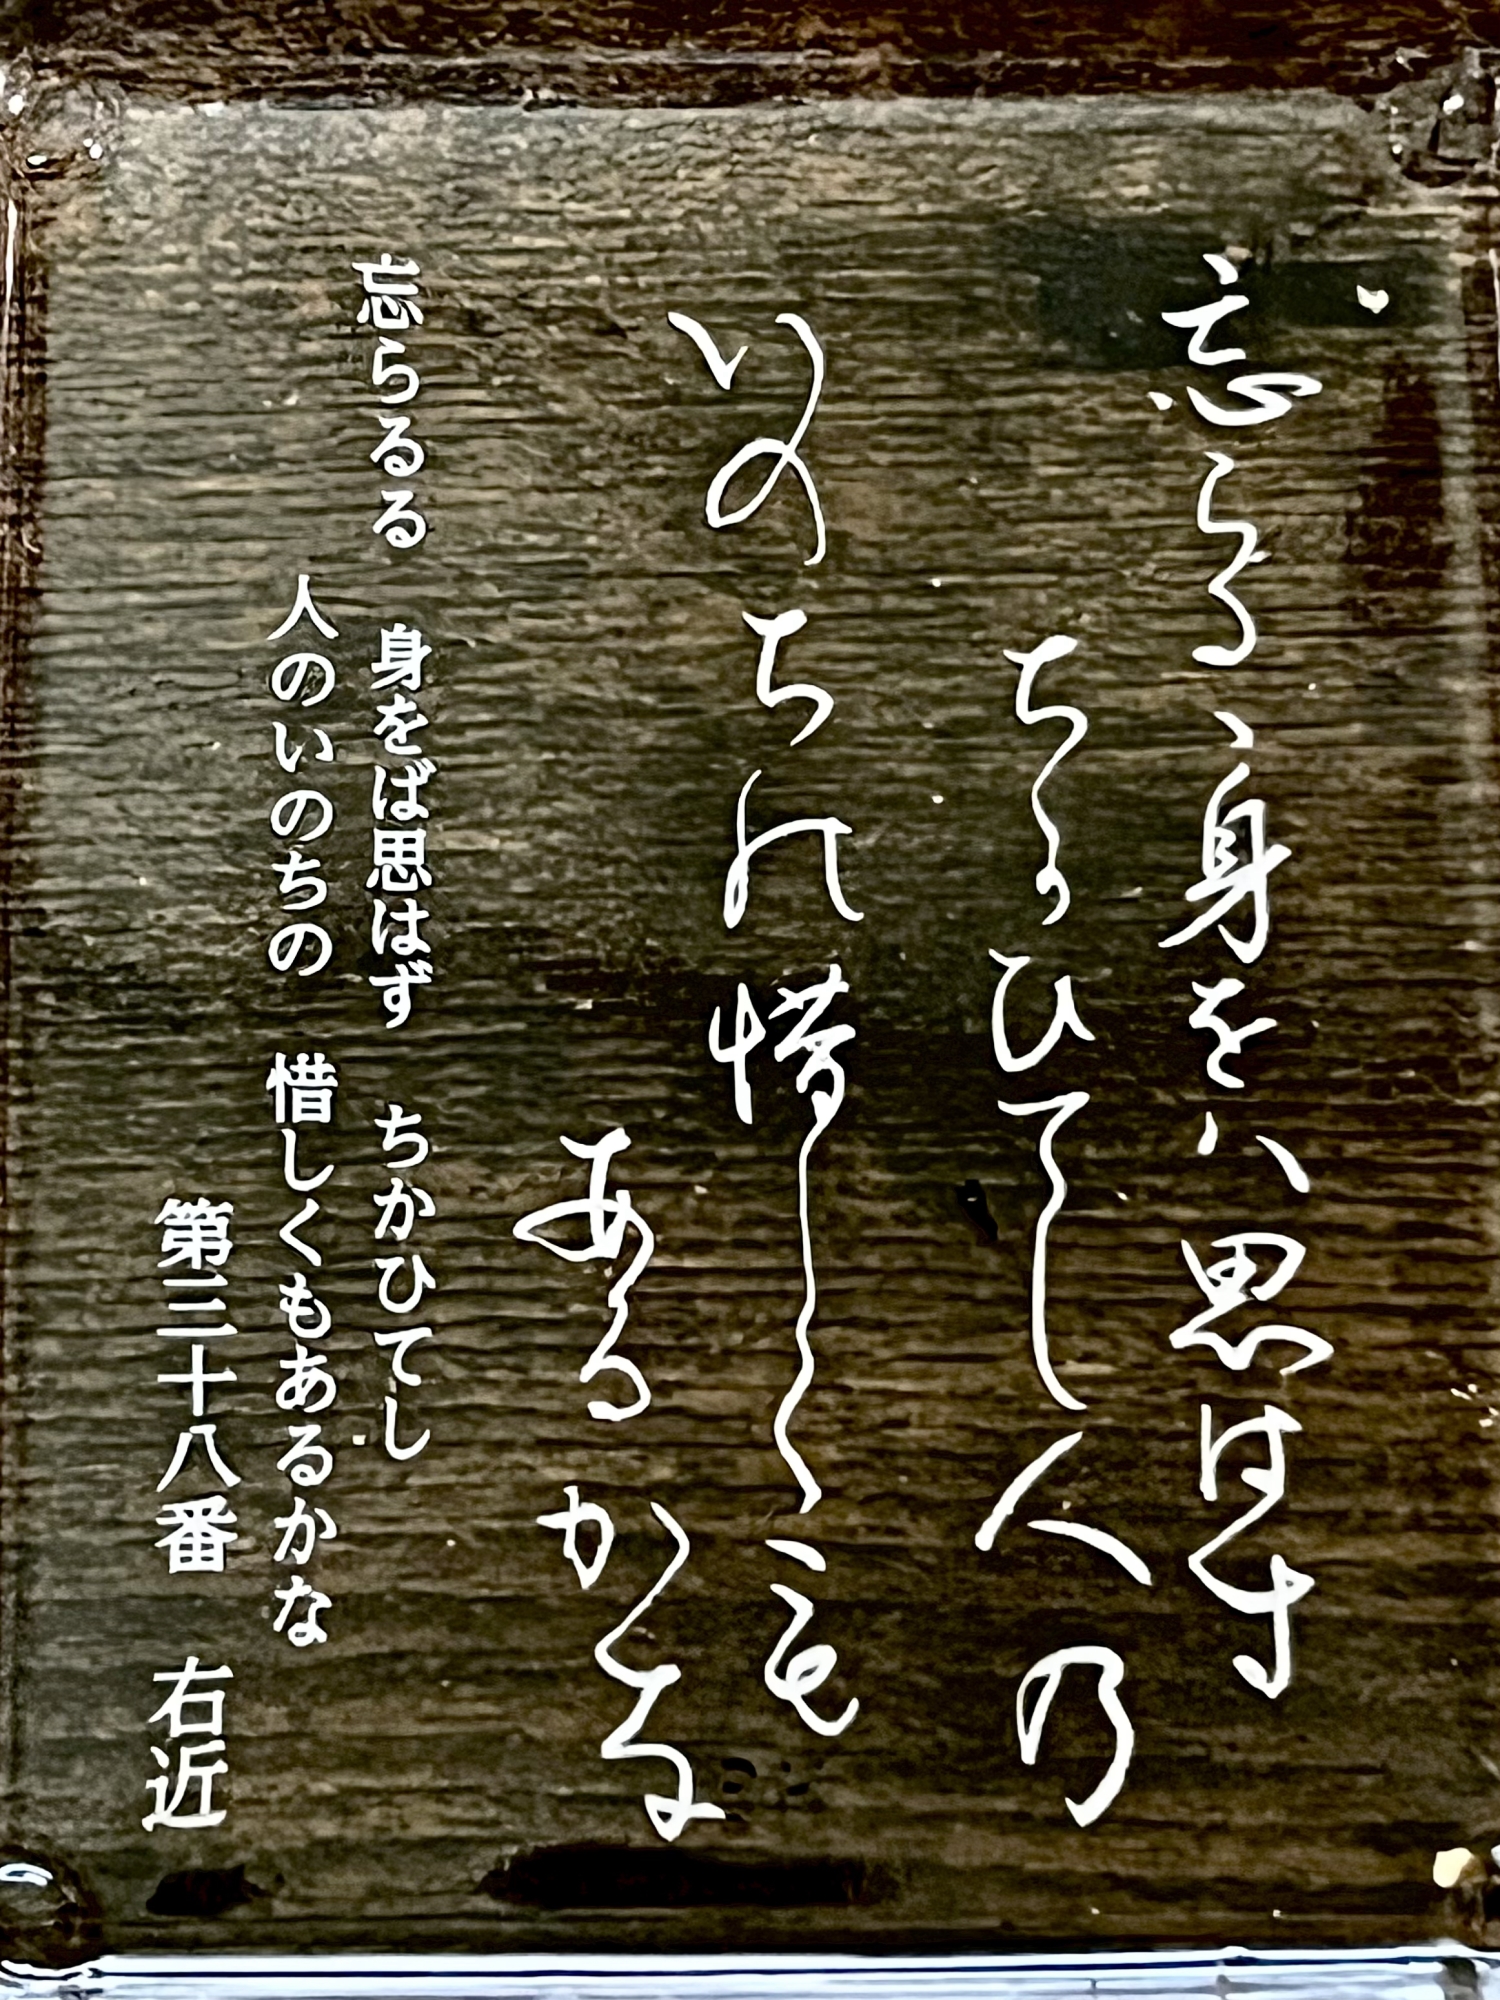 忘らるゝ身をハ思はす
ちかひてし人乃
いのちの惜しくも
あるかな
忘らるる　身をば思はず　ちかひてし
人のいのちの　惜しくもあるかな
第三十八番　右近